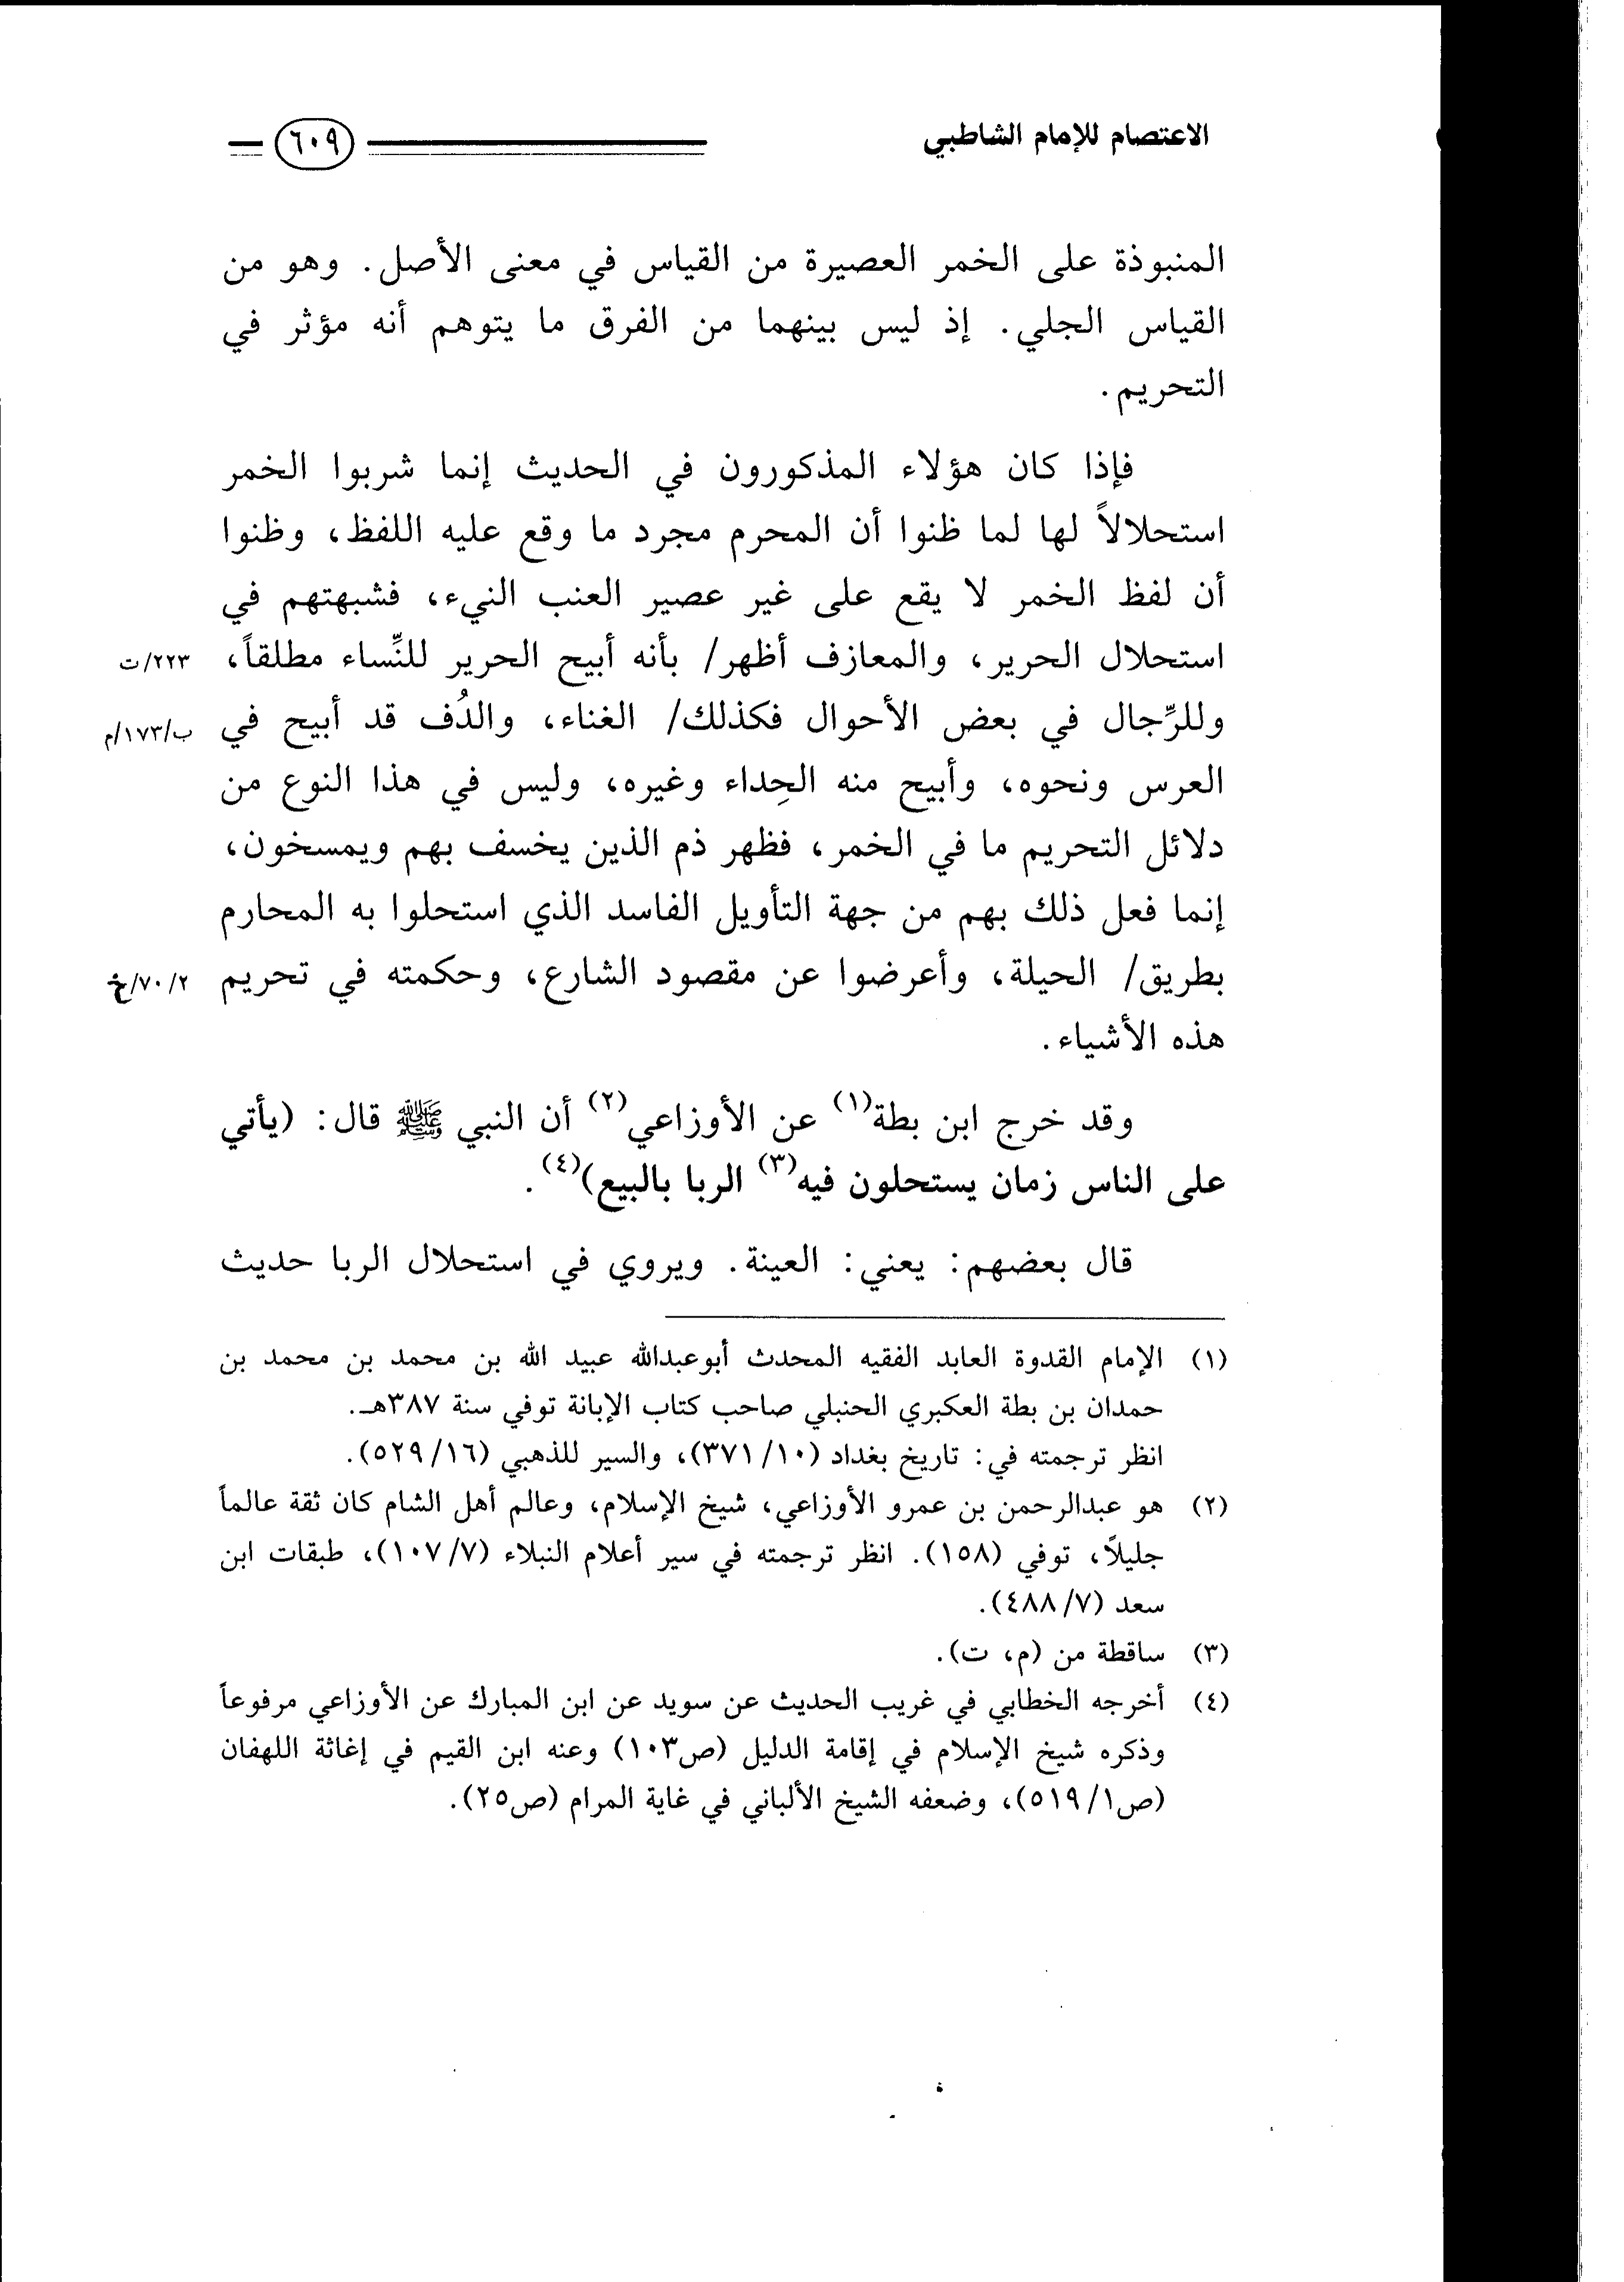 الاعتصام للإمام الشاطبي
٦٠٩
المنبوذة على الخمر العصيرة من القياس في معنى الأصل. وهو من
القياس الجلي. إذ ليس بينهما من الفرق ما يتوهم أنه مؤثر في
التحريم.
فإذا كان هؤلاء المذكورون في الحديث إنما شربوا الخمر
استحلالاً لها لما ظنوا أن المحرم مجرد ما وقع عليه اللفظ، وظنوا
أن لفظ الخمر لا يقع على غير عصير العنب النيء، فشبهتهم في
استحلال الحرير، والمعازف أظهر/ بأنه أبيح الحرير للنِّساء مطلقاً، ٢٢٣/ت
وللرِّجال في بعض الأحوال فكذلك/ الغناء، والدُف قد أبيح في ب/١٧٣/م
العرس ونحوه، وأبيح منه الحِداء وغيره، وليس في هذا النوع من
دلائل التحريم ما في الخمر، فظهر ذم الذين يخسف بهم ويمسخون،
إنما فعل ذلك بهم من جهة التأويل الفاسد الذي استحلوا به المحارم
بطريق/ الحيلة، وأعرضوا عن مقصود الشارع، وحكمته في تحريم ٢/٧٠/خ
هذه الأشياء.
وقد خرج ابن بطة(١) عن الأوزاعي(٢) أن النبي ﷺ قال: (يأتي
على الناس زمان يستحلون فيه(٣) الربا بالبيع)(٤).
قال بعضهم: يعني: العينة. ويروي في استحلال الربا حديث
(١) الإمام القدوة العابد الفقيه المحدث أبوعبدالله عبيد الله بن محمد بن محمد بن
حمدان بن بطة العكبري الحنبلي صاحب كتاب الإبانة توفي سنة ٣٨٧هـ.
انظر ترجمته في: تاريخ بغداد (١٠/٣٧١)، والسير للذهبي (١٦/٥٢٩).
(٢) هو عبدالرحمن بن عمرو الأوزاعي، شيخ الإسلام، وعالم أهل الشام كان ثقة عالماً
جليلاً، توفي (١٥٨). انظر ترجمته في سير أعلام النبلاء (٧/١٠٧)، طبقات ابن
سعد (٧/٤٨٨).
(٣) ساقطة من (م، ت).
(٤) أخرجه الخطابي في غريب الحديث عن سويد عن ابن المبارك عن الأوزاعي مرفوعاً
وذكره شيخ الإسلام في إقامة الدليل (ص١٠٣) وعنه ابن القيم في إغاثة اللهفان
(ص١/٥١٩)، وضعفه الشيخ الألباني في غاية المرام (ص٢٥).